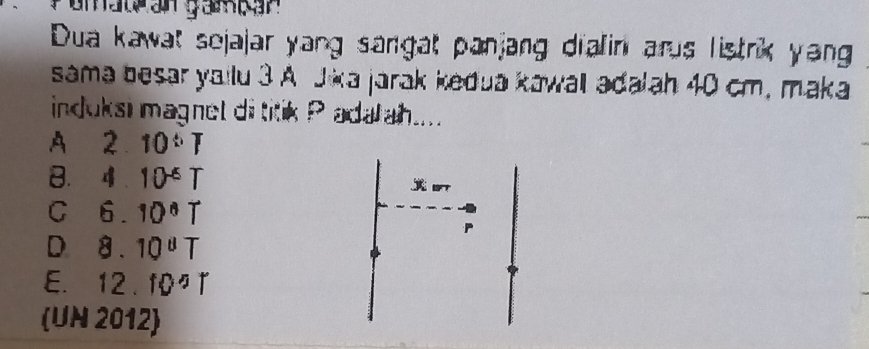 gambar!
Dua kawat sejajar yang sangat panjang dialiri arus listrik yang
sama besar yaitu 3 A Jika jarak kedua kawat adalah 40 cm, maka
induksi magnet di titik P adalah....
A 2 . 10 T
B. 4 . 10 T
C 6 . 10 T
D 8 . 10 T
E. 12 . 10 T
(UN 2012)
P